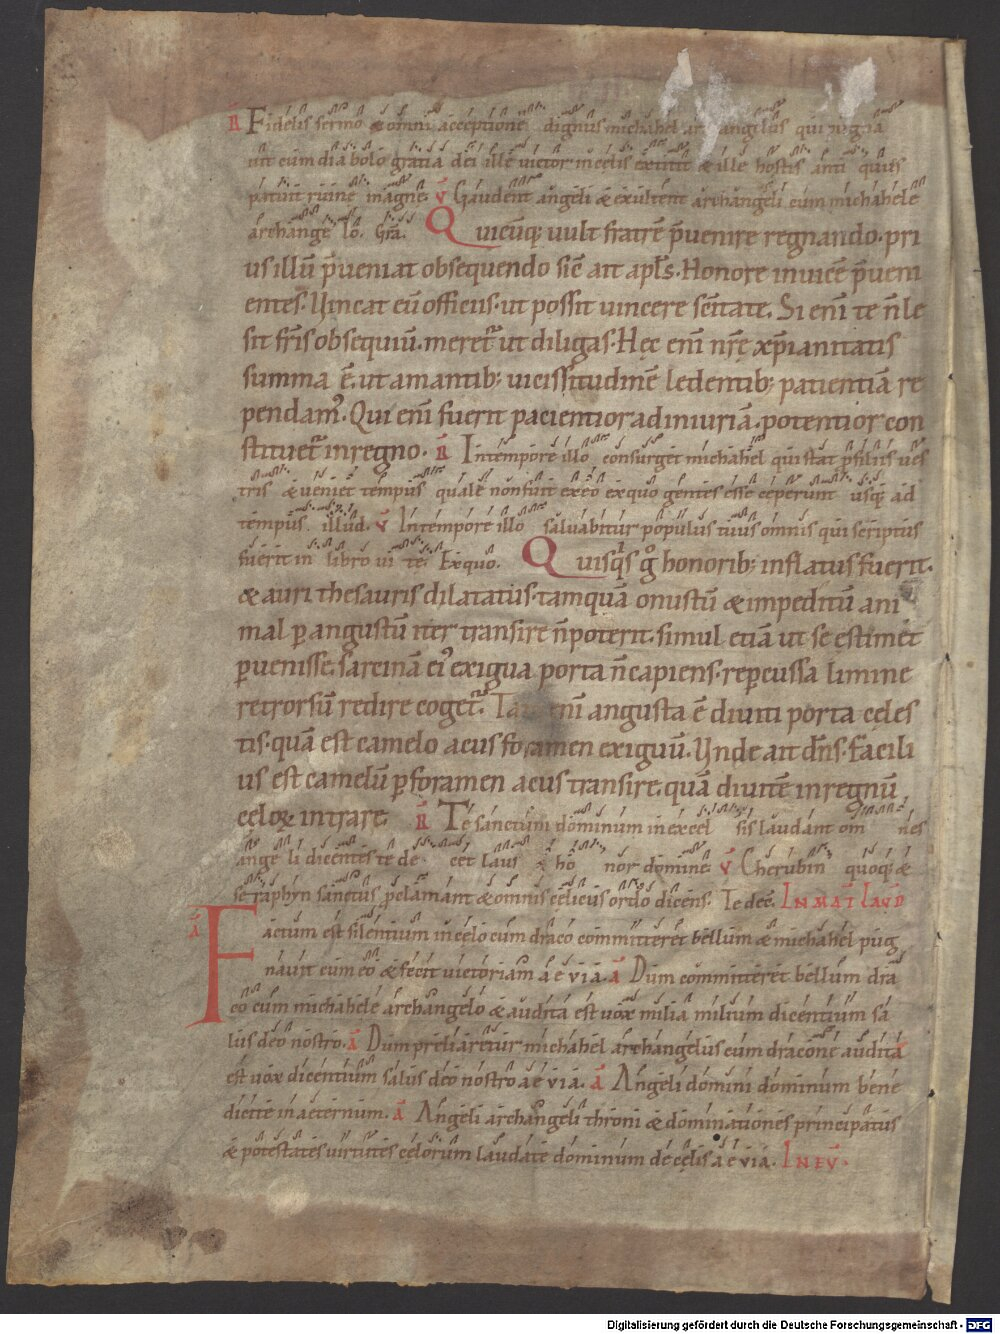 R Fidelis sermo & omni acceptione dignus michahel archangelus qui pugna
uit cum diabolo gratia dei ille victor in celis extitit & ille hostis anti quus
patuit ruine magne. V Gaudent angeli & exultent archangeli cum michahele
archange lo. Gra. Quicūq; uult fratrē p̄uenire regnando. pri
us illū p̄ueniat obsequendo sic̄ ait apl̄s. Honore inuicē p̄ueni
entes. Uincat eū officiis. ut possit uincere sc̄itate. Si eni̅ te n̄ le
sit fr̄is obsequiū. meret᷑ ut diligas. Hęc eni̅ nr̄ę xp̄ianitatis
summa ē. ut amantib; uicissitudinē ledentib; patientiā re
pendam᷒. Qui eni̅ fuerit pacientior ad iniuriā. potentior con
stituet᷑ in regno. R In tempore illo consurget michahel qui stat p̄ filiis ues
tris & veniet tempus quale non fuit ex eo ex quo gentes esse ceperunt usq; ad
tempus illud. V In tempore illo saluabitur populus tuus omnis qui scriptus
fuerit in libro ui te. Ex quo. Quisq̇s gͦ honorib; inflatus fuerit.
& auri thesauris dilatatus. tamquā onustū & impeditū ani
mal p̱ angustū iter transire n̄ poterit. simul etiā ut se estimet
p̱uenisse. sarcinā ei᷒ exigua porta n̄ capiens. rep̱cussa limine
retrorsū redire coget᷑. Tam eni̅ angusta ē diuiti porta cęles
tis. quā est camelo acus foramen exiguū. Unde ait dn̄s. Facili
us est camelū p̱ foramen acus transire. quā diuitē in regnū
celoꝝ intrare. R Te sanctum dominum in excel sis laudant om nes
ange li dicentes te de cet laus & ho nor domine. V Cherubin quoq; &
seraphyn sanctus p̱clamant & omnis celicus ordo dicens. Te decȩ. IN MAT LAUD
A Factum est silentium in celo cum draco committeret bellum & michahel pug
nauit cum eo & fecit victoriam aevia. A Dum committeret bellum dra
co cum michahele archangelo & audita est uox milia milium dicentium sa
lus deo nostro. A Dum preliaretur michahel archangelus cum dracone audita
est uox dicentium salus deo nostro aevia. A Angeli domini dominum bene
dicite in aeternum. A Angeli archangeli throni & dominationes principatus
& potestates uirtutes celorum laudate dominum de cęlis aevia. IN EV.
Digitalisierung gefördert durch die Deutsche Forschungsgemeinschaft - DFG